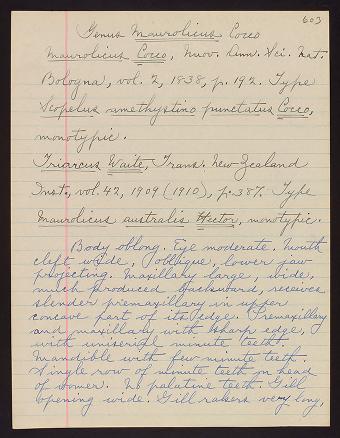 603
Genus Maurolicus Cocco
Maurolicus Cocco, Nuov. Ann. Sci. Nat.
Bologna, vol. 2, 1838, p. 192. Type
Scopelus amethystino punctatus Cocco,
monotypic.
Triarcus Waite, Trans. New Zealand
Inst., vol. 42, 1909 (1910), p. 387. Type
Maurolicus australis Hector, monotypic.
Body oblong. Eye moderate. Mouth
cleft wide, oblique, lower jaw
projecting. Maxillary large, wide,
much produced backward, receives
slender premaxillary in upper
concave part of its edge. Premaxillary
and maxillary with sharp edge,
with uniserial minute teeth.
Mandible with few minute teeth.
Single row of minute teeth on head
of vomer. No palatine teeth. Gill
opening wide. Gill rakers very long,